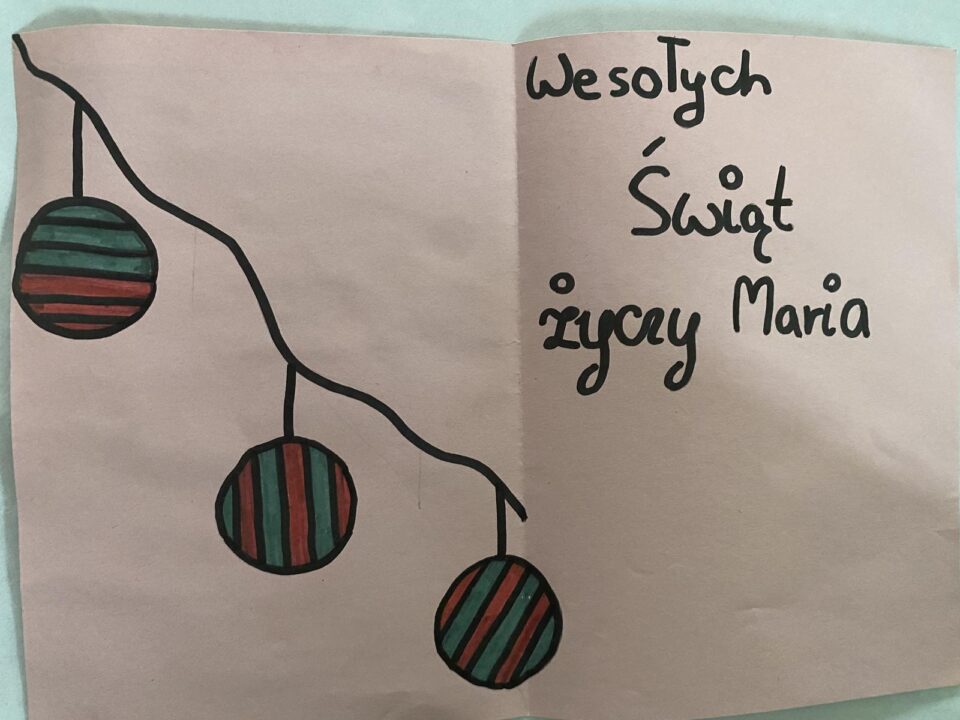 Wesołych
Świąt
życzy Maria